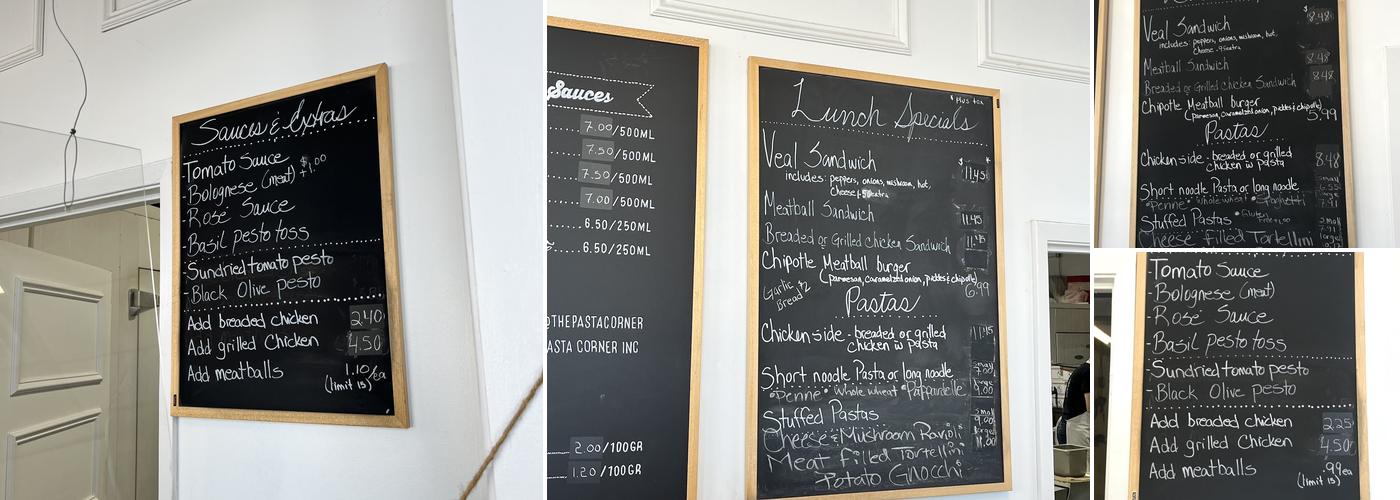 Sauces & Extras
Tomato Sauce
-Bolognese (meat) +$1.00
-Rosé Sauce
Basil pesto toss
-Sundried tomato pesto
-Black Olive pesto
Add breaded chicken 2.40
Add grilled Chicken 4.50
Add meatballs 1.10/ea
(limit 15)
Sauces
7.00/500ML
7.50/500ML
7.50/500ML
7.00/500ML
6.50/250ML
6.50/250ML
@THEPASTACORNER
ASTA CORNER INC
2.00/100GR
1.20/100GR
* Plus tax
Lunch Specials
Veal Sandwich $11.45
includes: peppers, onions, mushroom, hot,
Meatball Sandwich 11.45
Breaded or Grilled Chicken Sandwich 11.45
Chipotle Meatball burger
(parmesan, caramelized onion, pickles & chipotle) 6.99
Garlic Bread $2
Pastas
Chicken-side - breaded or grilled 11.45
chicken w pasta
Short noodle Pasta or long noodle
Penne • Whole wheat • Pappardelle
Stuffed Pastas Small 9.00
Cheese & Mushroom Ravioli Large 11.00
Meat Filled Tortellini
Potato Gnocchi
$8.48
Veal Sandwich
includes: peppers, onions, mushroom, hot,
Cheese
Meatball Sandwich 8.48
Breaded or Grilled chicken Sandwich 8.48
Chipotle Meatball burger
(parmesan, caramelized onion, pickles & chipotle) 5.99
Pastas
Chicken-side - breaded or grilled 8.48
chicken w pasta
Short noodle Pasta or long noodle
Penne • Whole wheat • Spaghetti
Stuffed Pastas
Cheese filled Tortellini
-Tomato Sauce
-Bolognese (meat)
-Rosé Sauce
-Basil pesto toss
-Sundried tomato pesto
-Black Olive pesto
Add breaded chicken 2.25
Add grilled Chicken 4.50
Add meatballs .99ea
(limit 15)